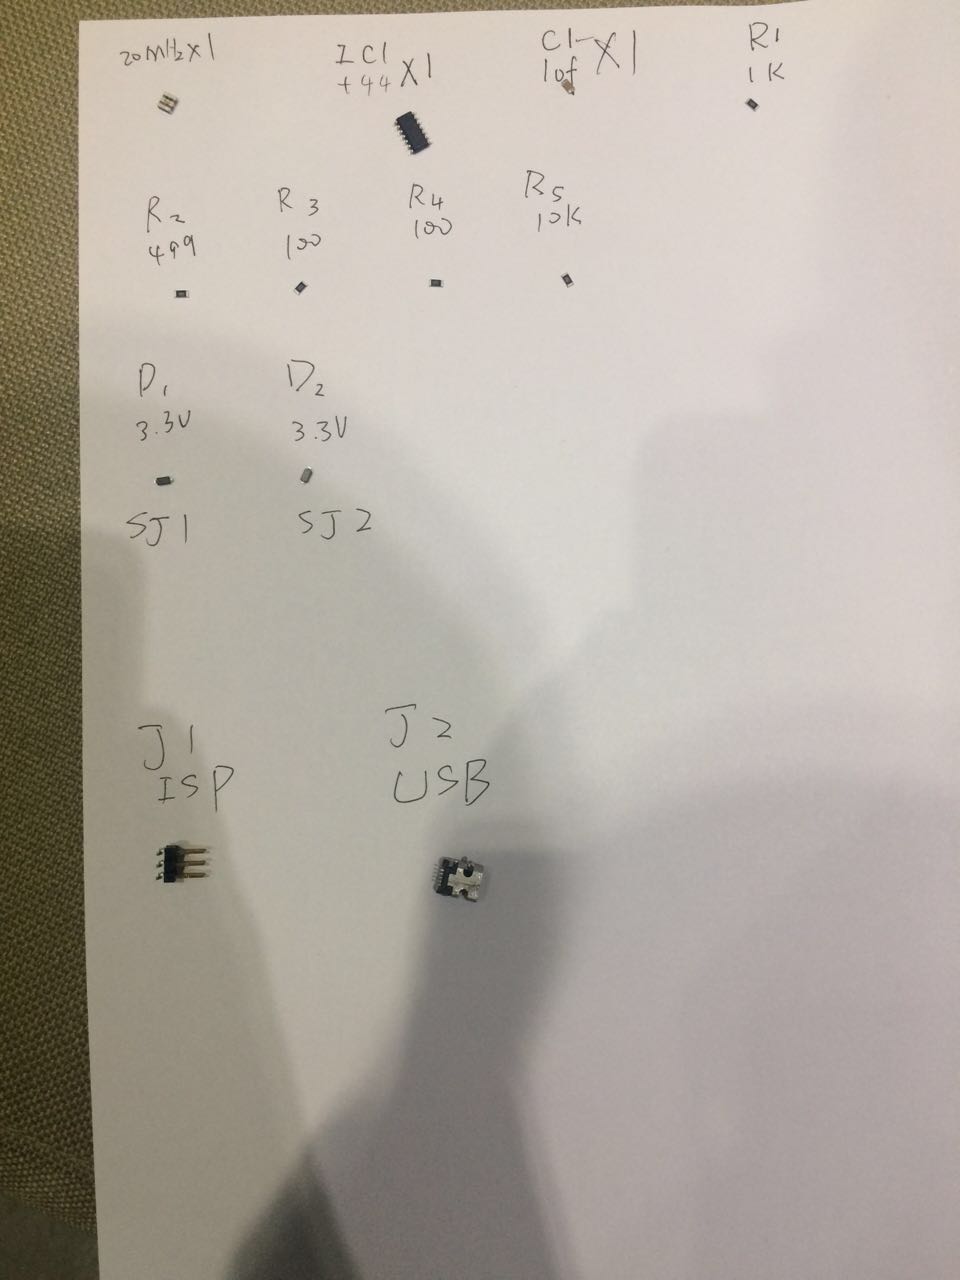 20MHz X1
IC1
t44 X1
C1
1uf X1
R1
1K
R2
499
R3
100
R4
100
R5
10K
D1
3.3V
D2
3.3V
SJ1
SJ2
J1
ISP
J2
USB